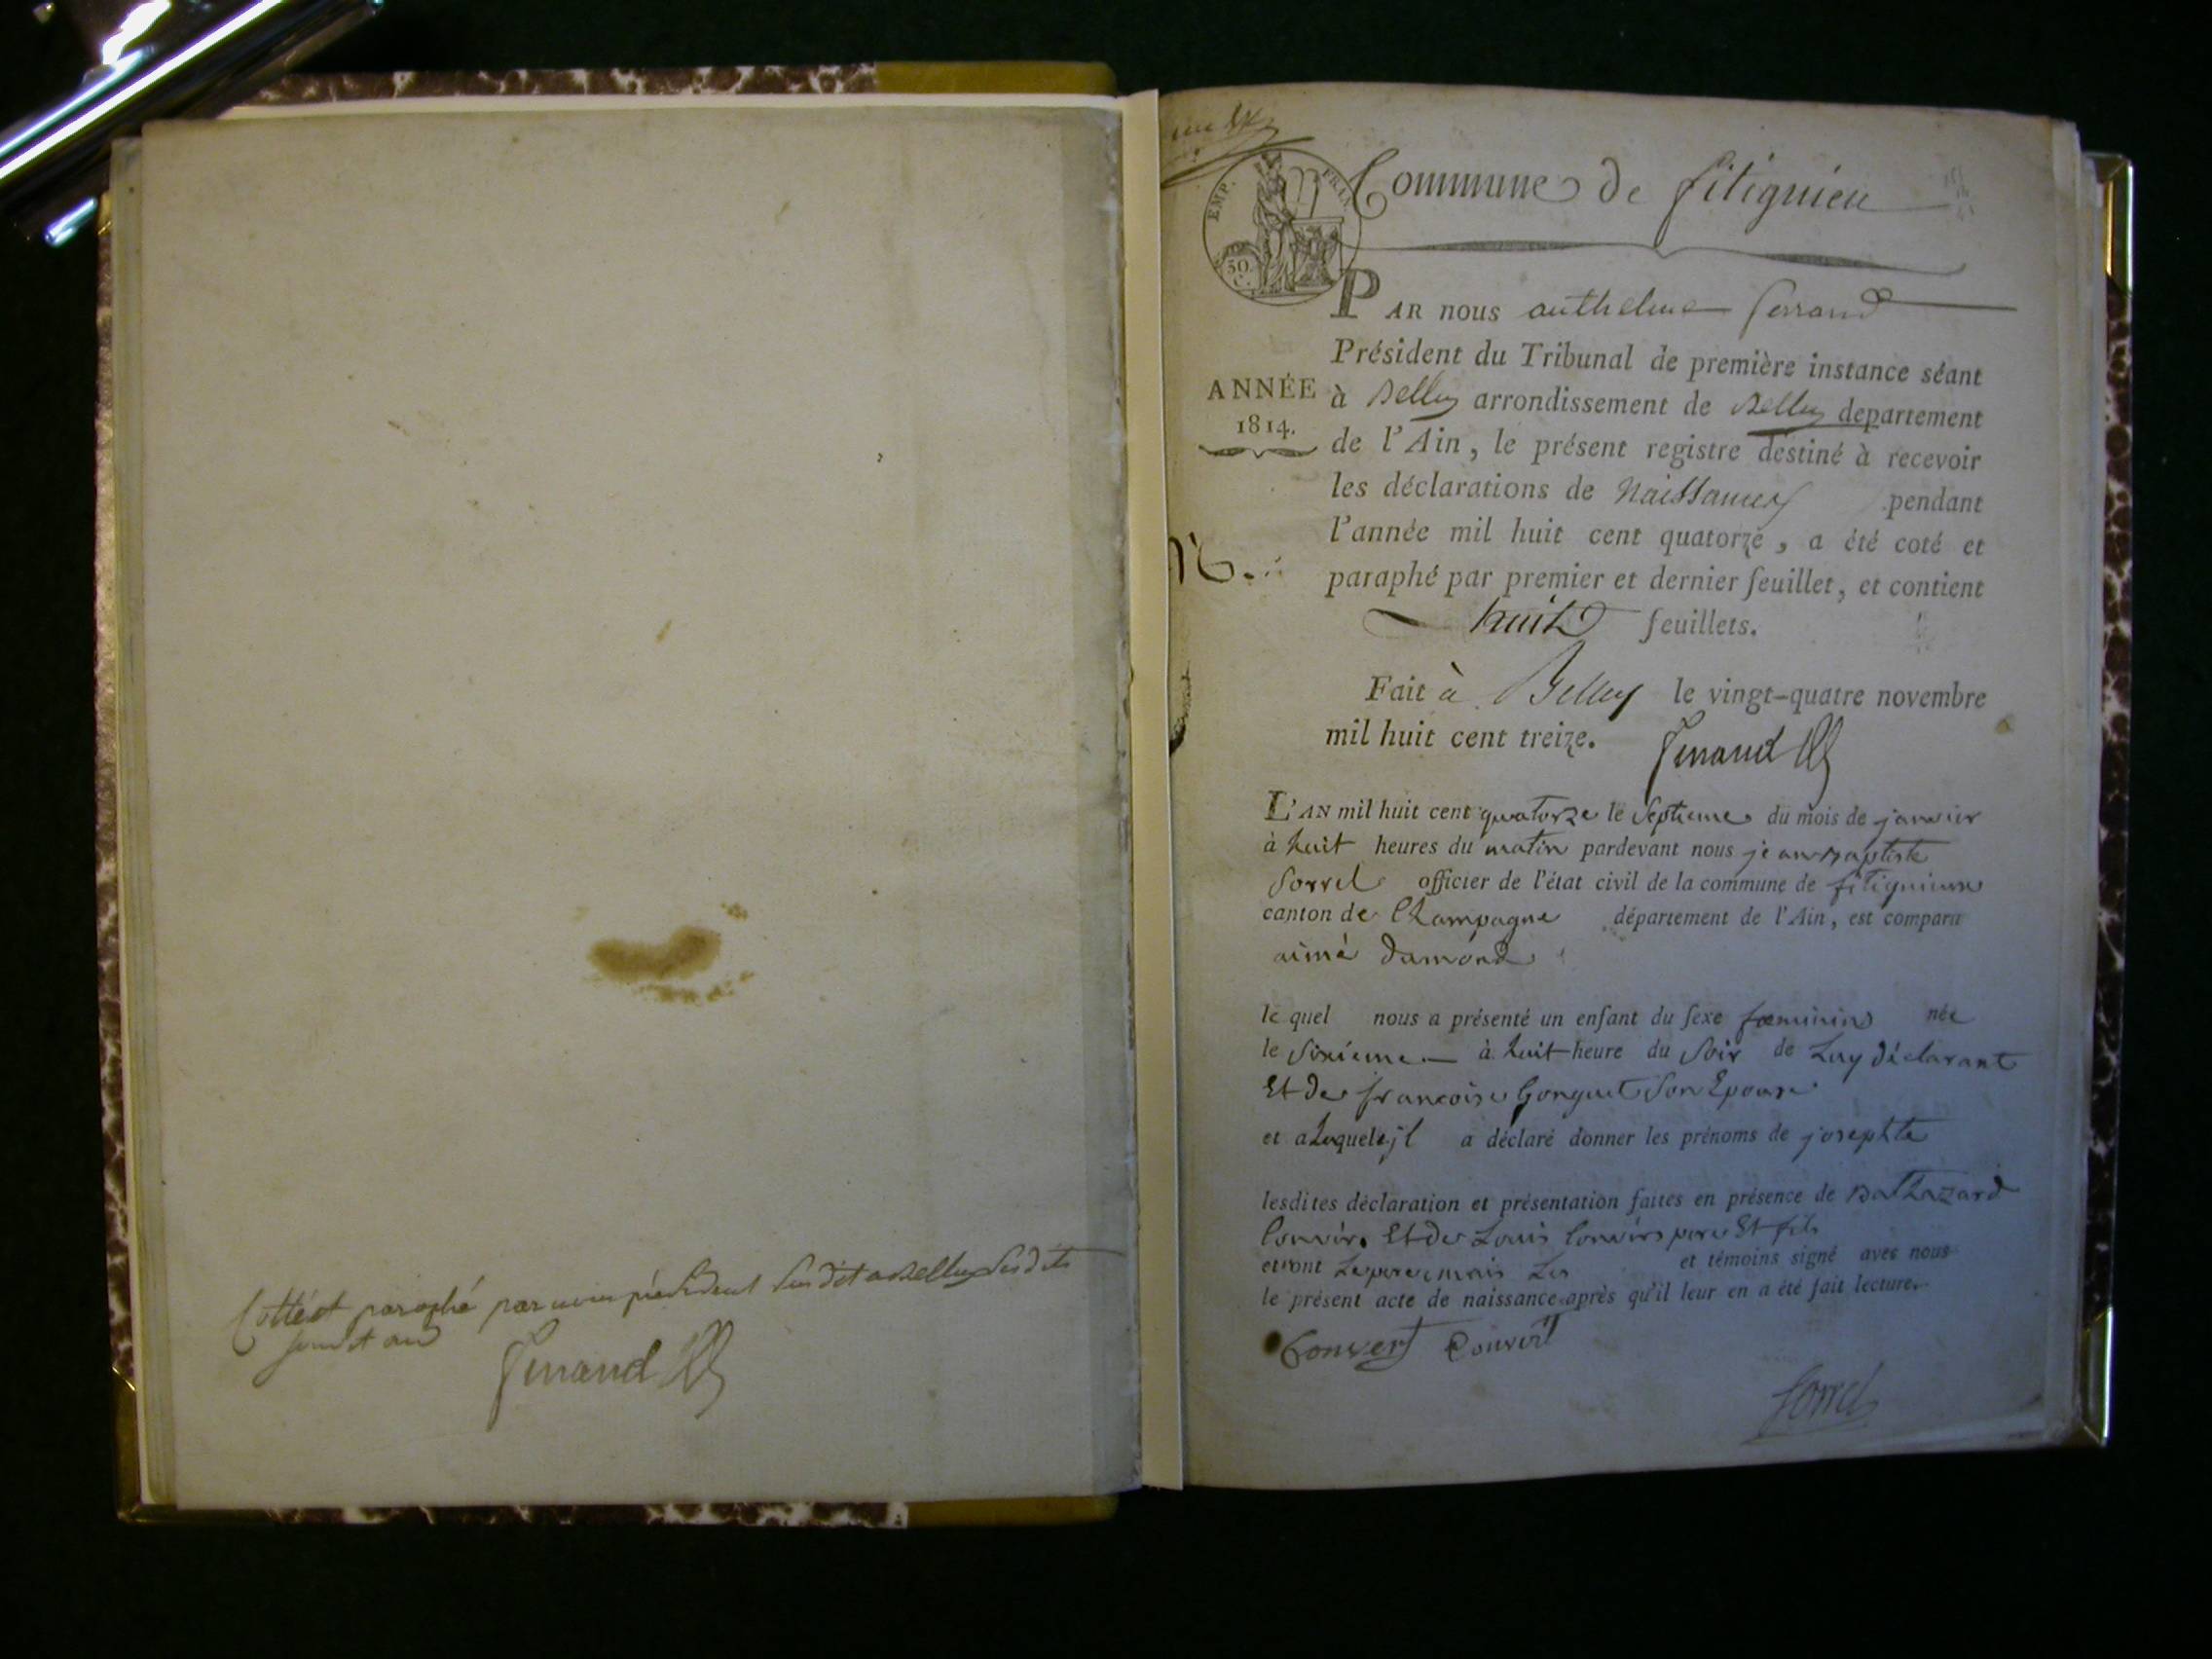 Cotté et paraphé par nous président susdit a Belley lesdits
jour et an
Ferrand
EMP. FRAN.
50.
C.
Commune de fitignieu
PAR nous anthelme ferrand
Président du Tribunal de première instance séant
ANNÉE
1814.
à Belley arrondissement de Belley departement
de l'Ain, le présent registre destiné à recevoir
les déclarations de Naissances pendant
l'année mil huit cent quatorze, a été coté et
paraphé par premier et dernier feuillet, et contient
huit feuillets.
Fait à Belley le vingt-quatre novembre
mil huit cent treize. Ferrand
L'AN mil huit cent quatorze le septieme du mois de janvier
à huit heures du matin pardevant nous jean Baptiste
Sorrel officier de l'état civil de la commune de fitignieux
canton de Champagne département de l'Ain, est comparu
aimé Dumond
le quel nous a présenté un enfant du sexe fœminin née
le sixieme à huit heure du soir de Luy déclarant
Et de francoise Gonguet son Epouse
et a Laquele jl a déclaré donner les prénoms de josephte
lesdites déclaration et présentation faites en présence de Balthazard
Convers Et de Louis Convers pere Et fils
et ont Le pere mais Les et témoins signé avec nous
le présent acte de naissance après qu'il leur en a été fait lecture.
Convert Convert
Sorrel